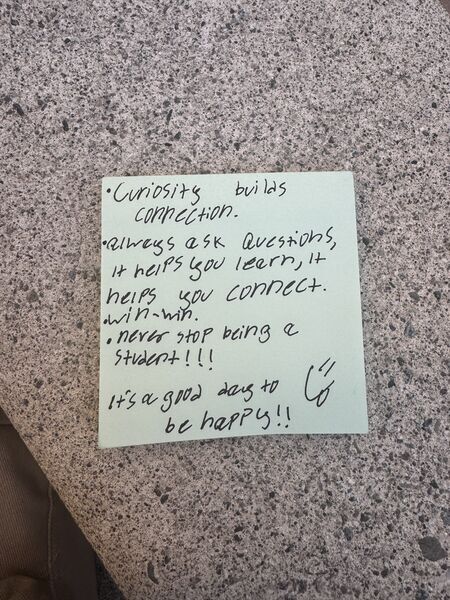 • Curiosity builds
connection.
• always ask questions,
it helps you learn, it
helps you connect.
• win-win.
• never stop being a
student!!!
it's a good day to
be happy!!